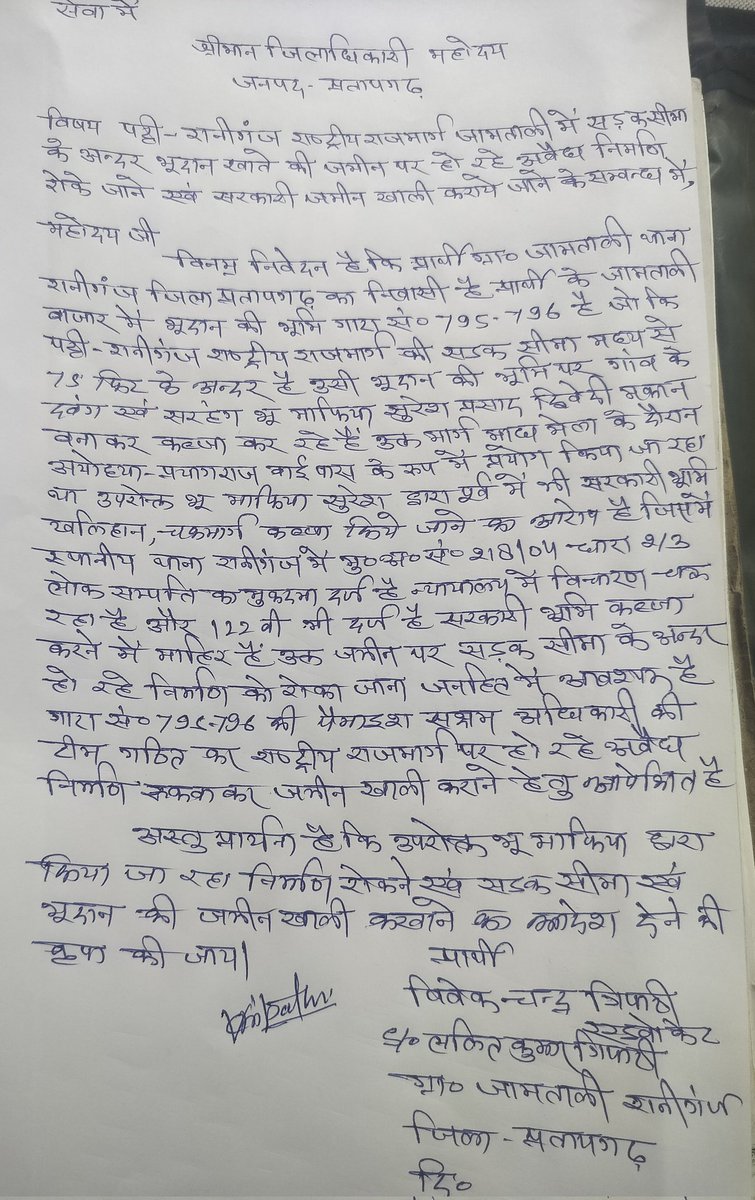 सेवा में
श्रीमान जिलाधिकारी महोदय
जनपद - प्रतापगढ़
विषय पट्टी - रानीगंज राष्ट्रीय राजमार्ग जामताली में सड़क सीमा
के अन्दर भूदान खाते की जमीन पर हो रहे अवैध निर्माण
रोके जाने एवं सरकारी जमीन खाली कराये जाने के सम्बन्ध में,
महोदय जी
विनम्र निवेदन है कि प्रार्थी ग्रा० जामताली थाना
रानीगंज जिला प्रतापगढ़ का निवासी है प्रार्थी के जामताली
बाजार में भूदान की भूमि गाटा सं० 795-796 है जो कि
पट्टी - रानीगंज राष्ट्रीय राजमार्ग की सड़क सीमा मध्य से
75 फिट के अन्दर है उसी भूदान की भूमि पर गांव के
दबंग एवं सरहंग भू माफिया सुरेश प्रसाद द्विवेदी मकान
बना कर कब्जा कर रहे हैं उक्त मार्ग माघ मेला के दौरान
अयोध्या - प्रयागराज बाई पास के रूप में प्रयोग किया जा रहा
था उपरोक्त भू माफिया सुरेश द्वारा पूर्व में भी सरकारी भूमि
खलिहान, चकमार्ग कब्जा किये जाने का आरोप है जिसमें
स्थानीय थाना रानीगंज में मु०अ०सं० 218/04 धारा 2/3
लोक सम्पत्ति का मुकदमा दर्ज है न्यायालय में विचारण चल
रहा है और 122 बी भी दर्ज है सरकारी भूमि कब्जा
करने में माहिर है उक्त जमीन पर सड़क सीमा के अन्दर
हो रहे निर्माण को रोका जाना जनहित में आवश्यक है
गाटा सं० 795-796 की पैमाइश सक्षम अधिकारी की
टीम गठित कर राष्ट्रीय राजमार्ग पर हो रहे अवैध
निर्माण रुकवा कर जमीन खाली कराने हेतु आपेक्षित है
अस्तु प्रार्थना है कि उपरोक्त भू माफिया द्वारा
किया जा रहा निर्माण रोकने एवं सड़क सीमा एवं
भूदान की जमीन खाली करवाने का आदेश देने की
कृपा की जाय।
प्रार्थी
विवेक चन्द्र त्रिपाठी
एडवोकेट
S/o ललित कुमार त्रिपाठी
ग्रा० जामताली रानीगंज
जिला - प्रतापगढ़
दि०